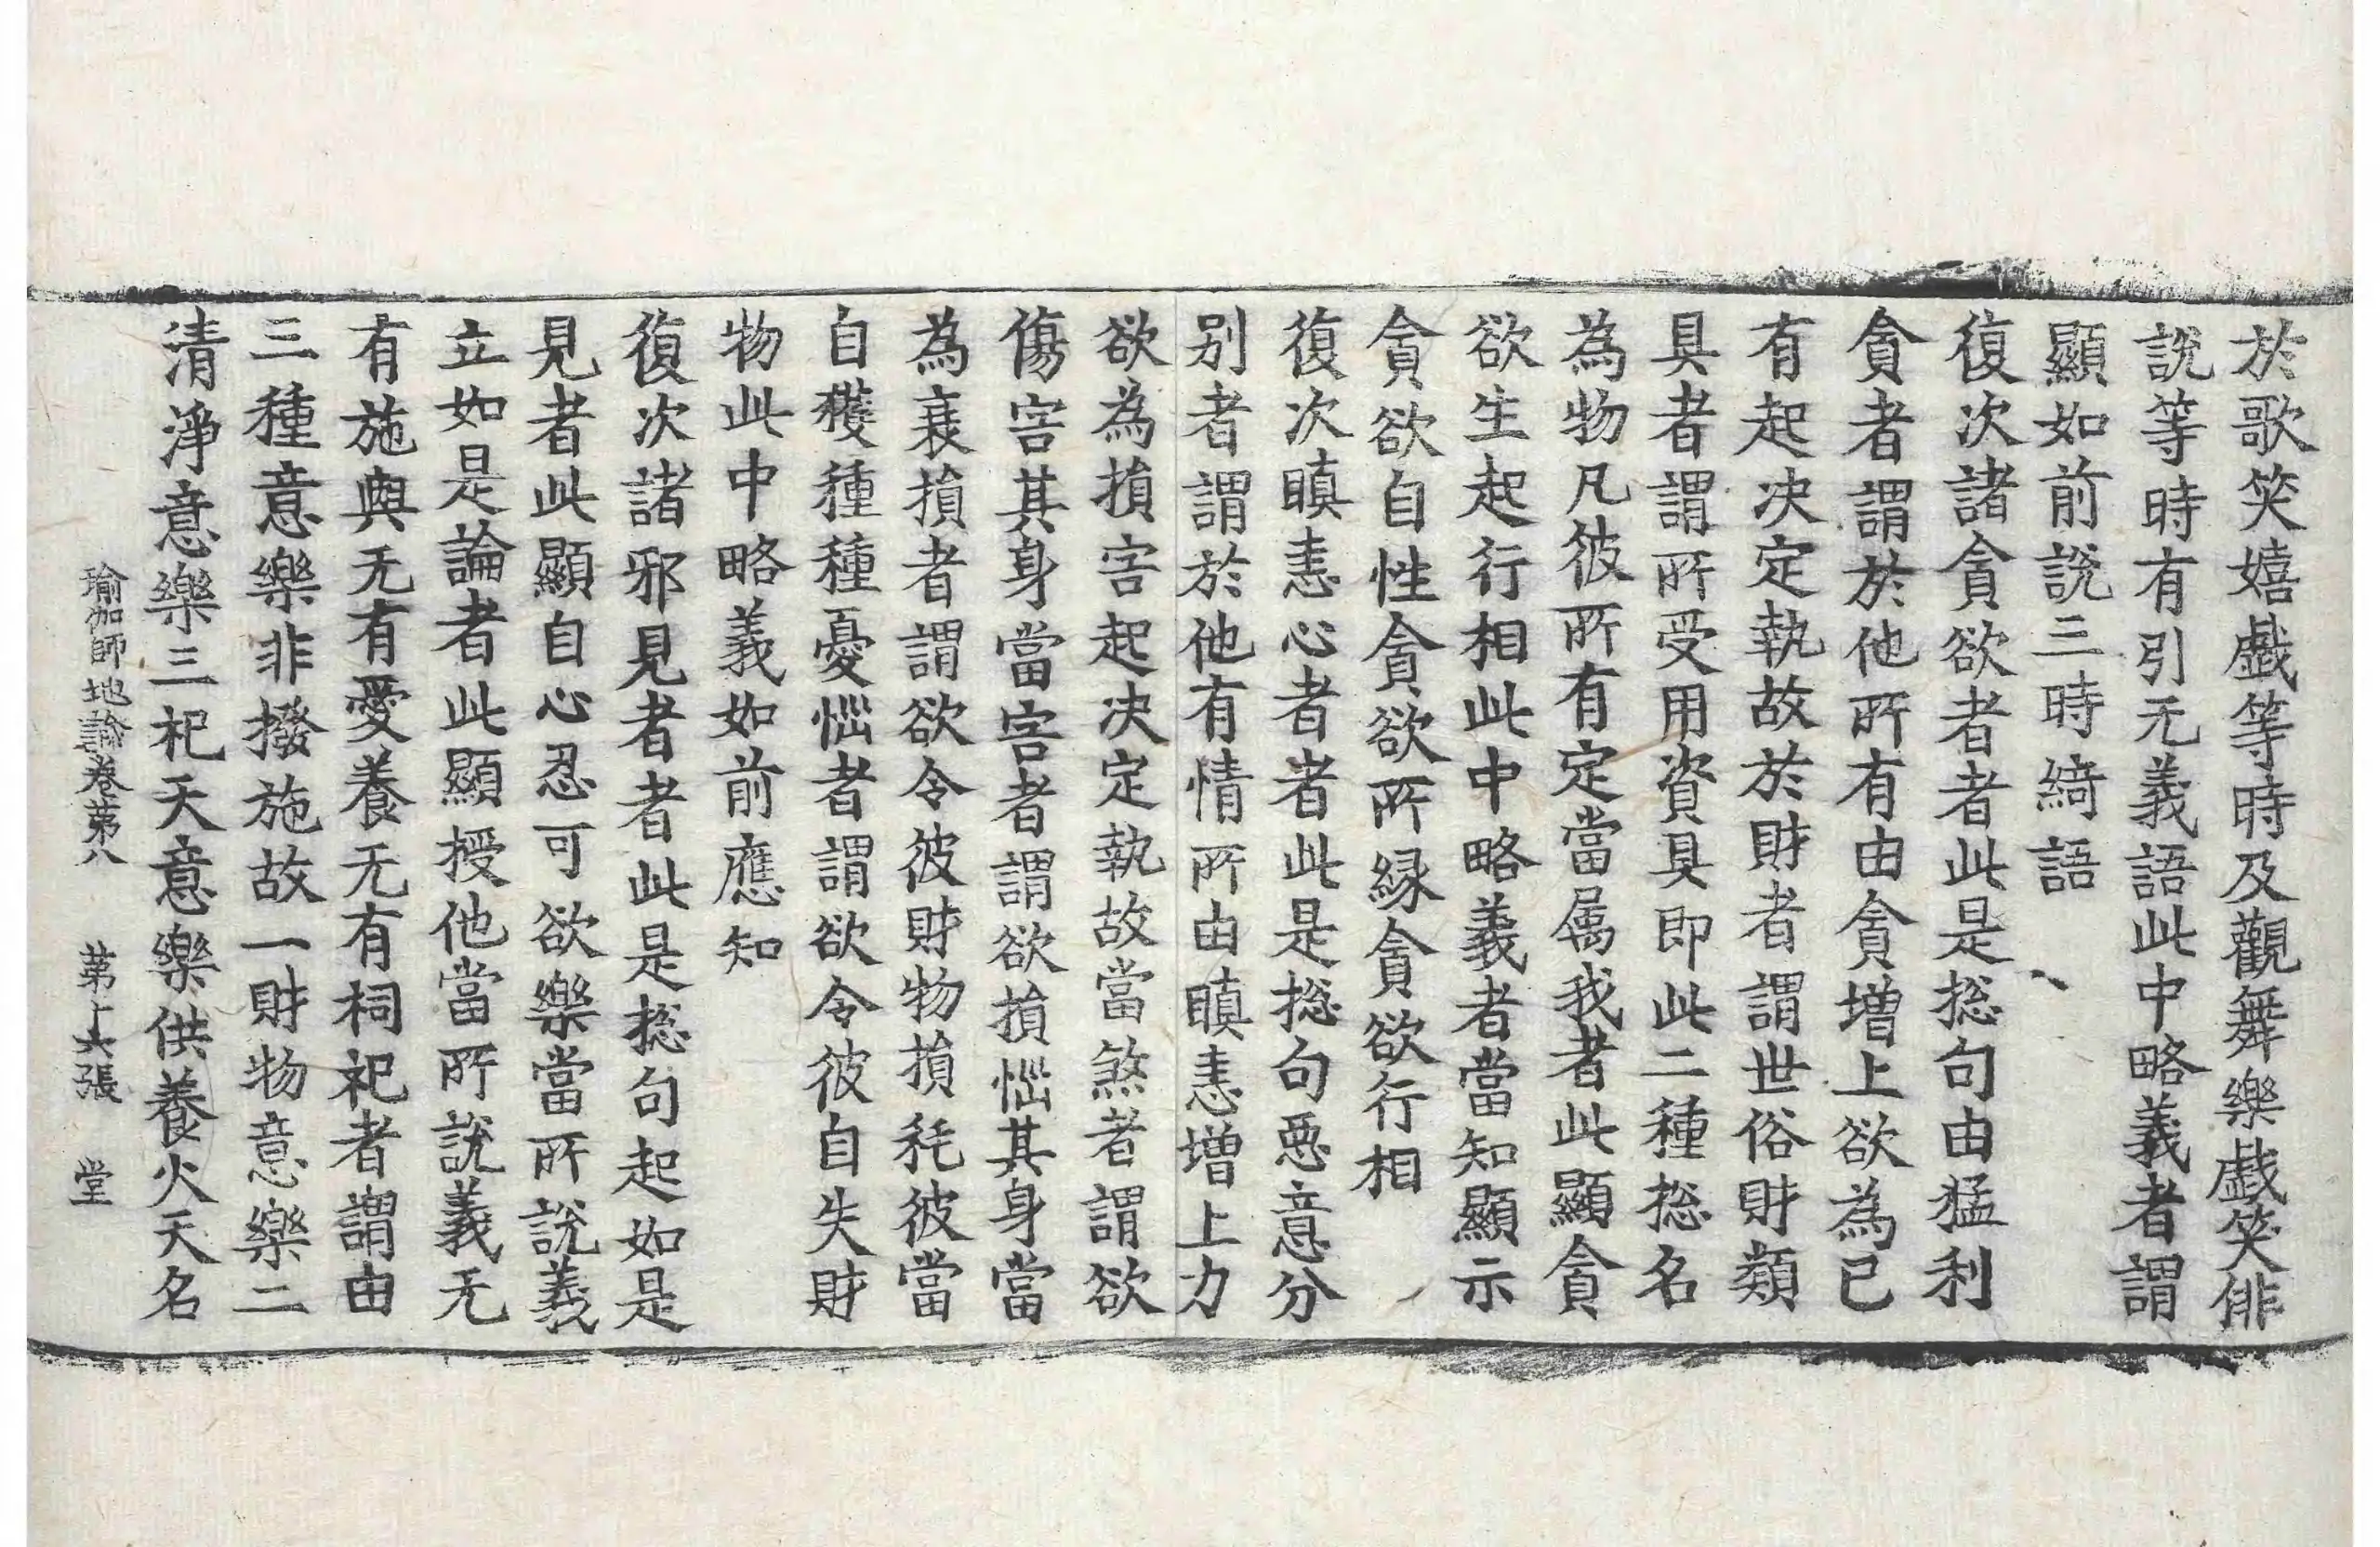 於歌笑嬉戲等時及觀舞樂戲笑俳
說等時有引无義語此中略義者謂
顯如前說三時綺語
復次諸貪欲者者此是捴句由猛利
貪者謂於他所有由貪增上欲為已
有起决定執故於財者謂世俗財類
具者謂所受用資具即此二種捴名
為物凡彼所有定當屬我者此顯貪
欲生起行相此中略義者當知顯示
貪欲自性貪欲所緣貪欲行相
復次瞋恚心者者此是捴句惡意分
別者謂於他有情所由瞋恚增上力
欲為損害起决定執故當煞者謂欲
傷害其身當害者謂欲損惱其身當
為衰損者謂欲令彼財物損耗彼當
自獲種種憂惱者謂欲令彼自失財
物此中略義如前應知
復次諸邪見者者此是捴句起如是
見者此顯自心忍可欲樂當所說義
立如是論者此顯授他當所說義无
有施與无有愛養无有祠祀者謂由
三種意樂非撥施故一財物意樂二
清淨意樂三祀天意樂供養火天名
瑜伽師地論卷第八 第十六張 堂